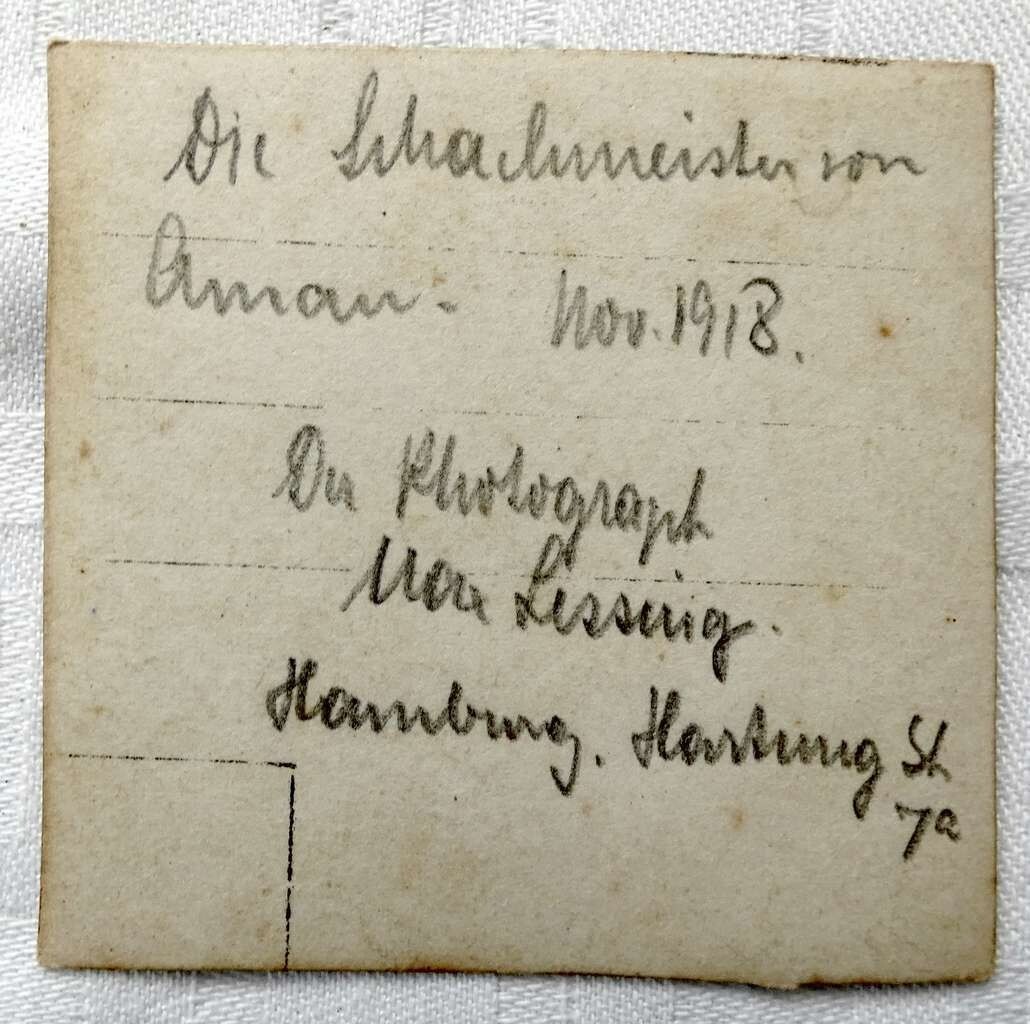 Die Schachmeister von
Aman. Nov. 1918.
Der Photograph
Max Lessing.
Hamburg. Hartung St
7a